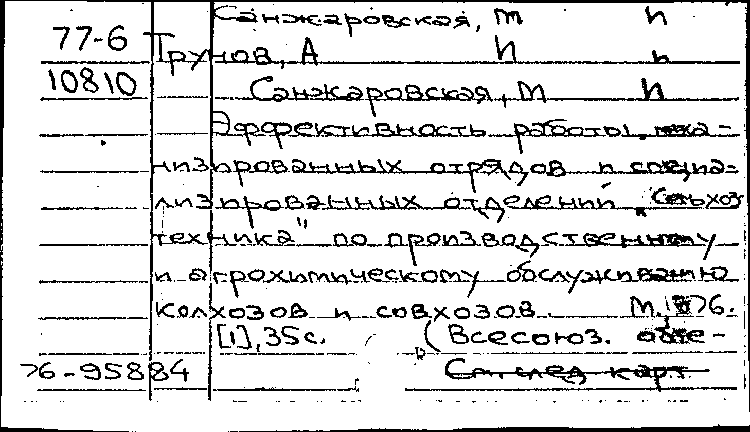 Санжаровская, М П
77-6 Трунов, А И п
10810 Санжаровская, М П
Эффективность работы меха-
низированных отрядов и специа-
лизированных отделений "Сельхоз
техника" по производственному
и агрохимическому обслуживанию
колхозов и совхозов. М., 1976.
[1], 35 с. (Всесоюз. объе-
76-95884 См. след карт